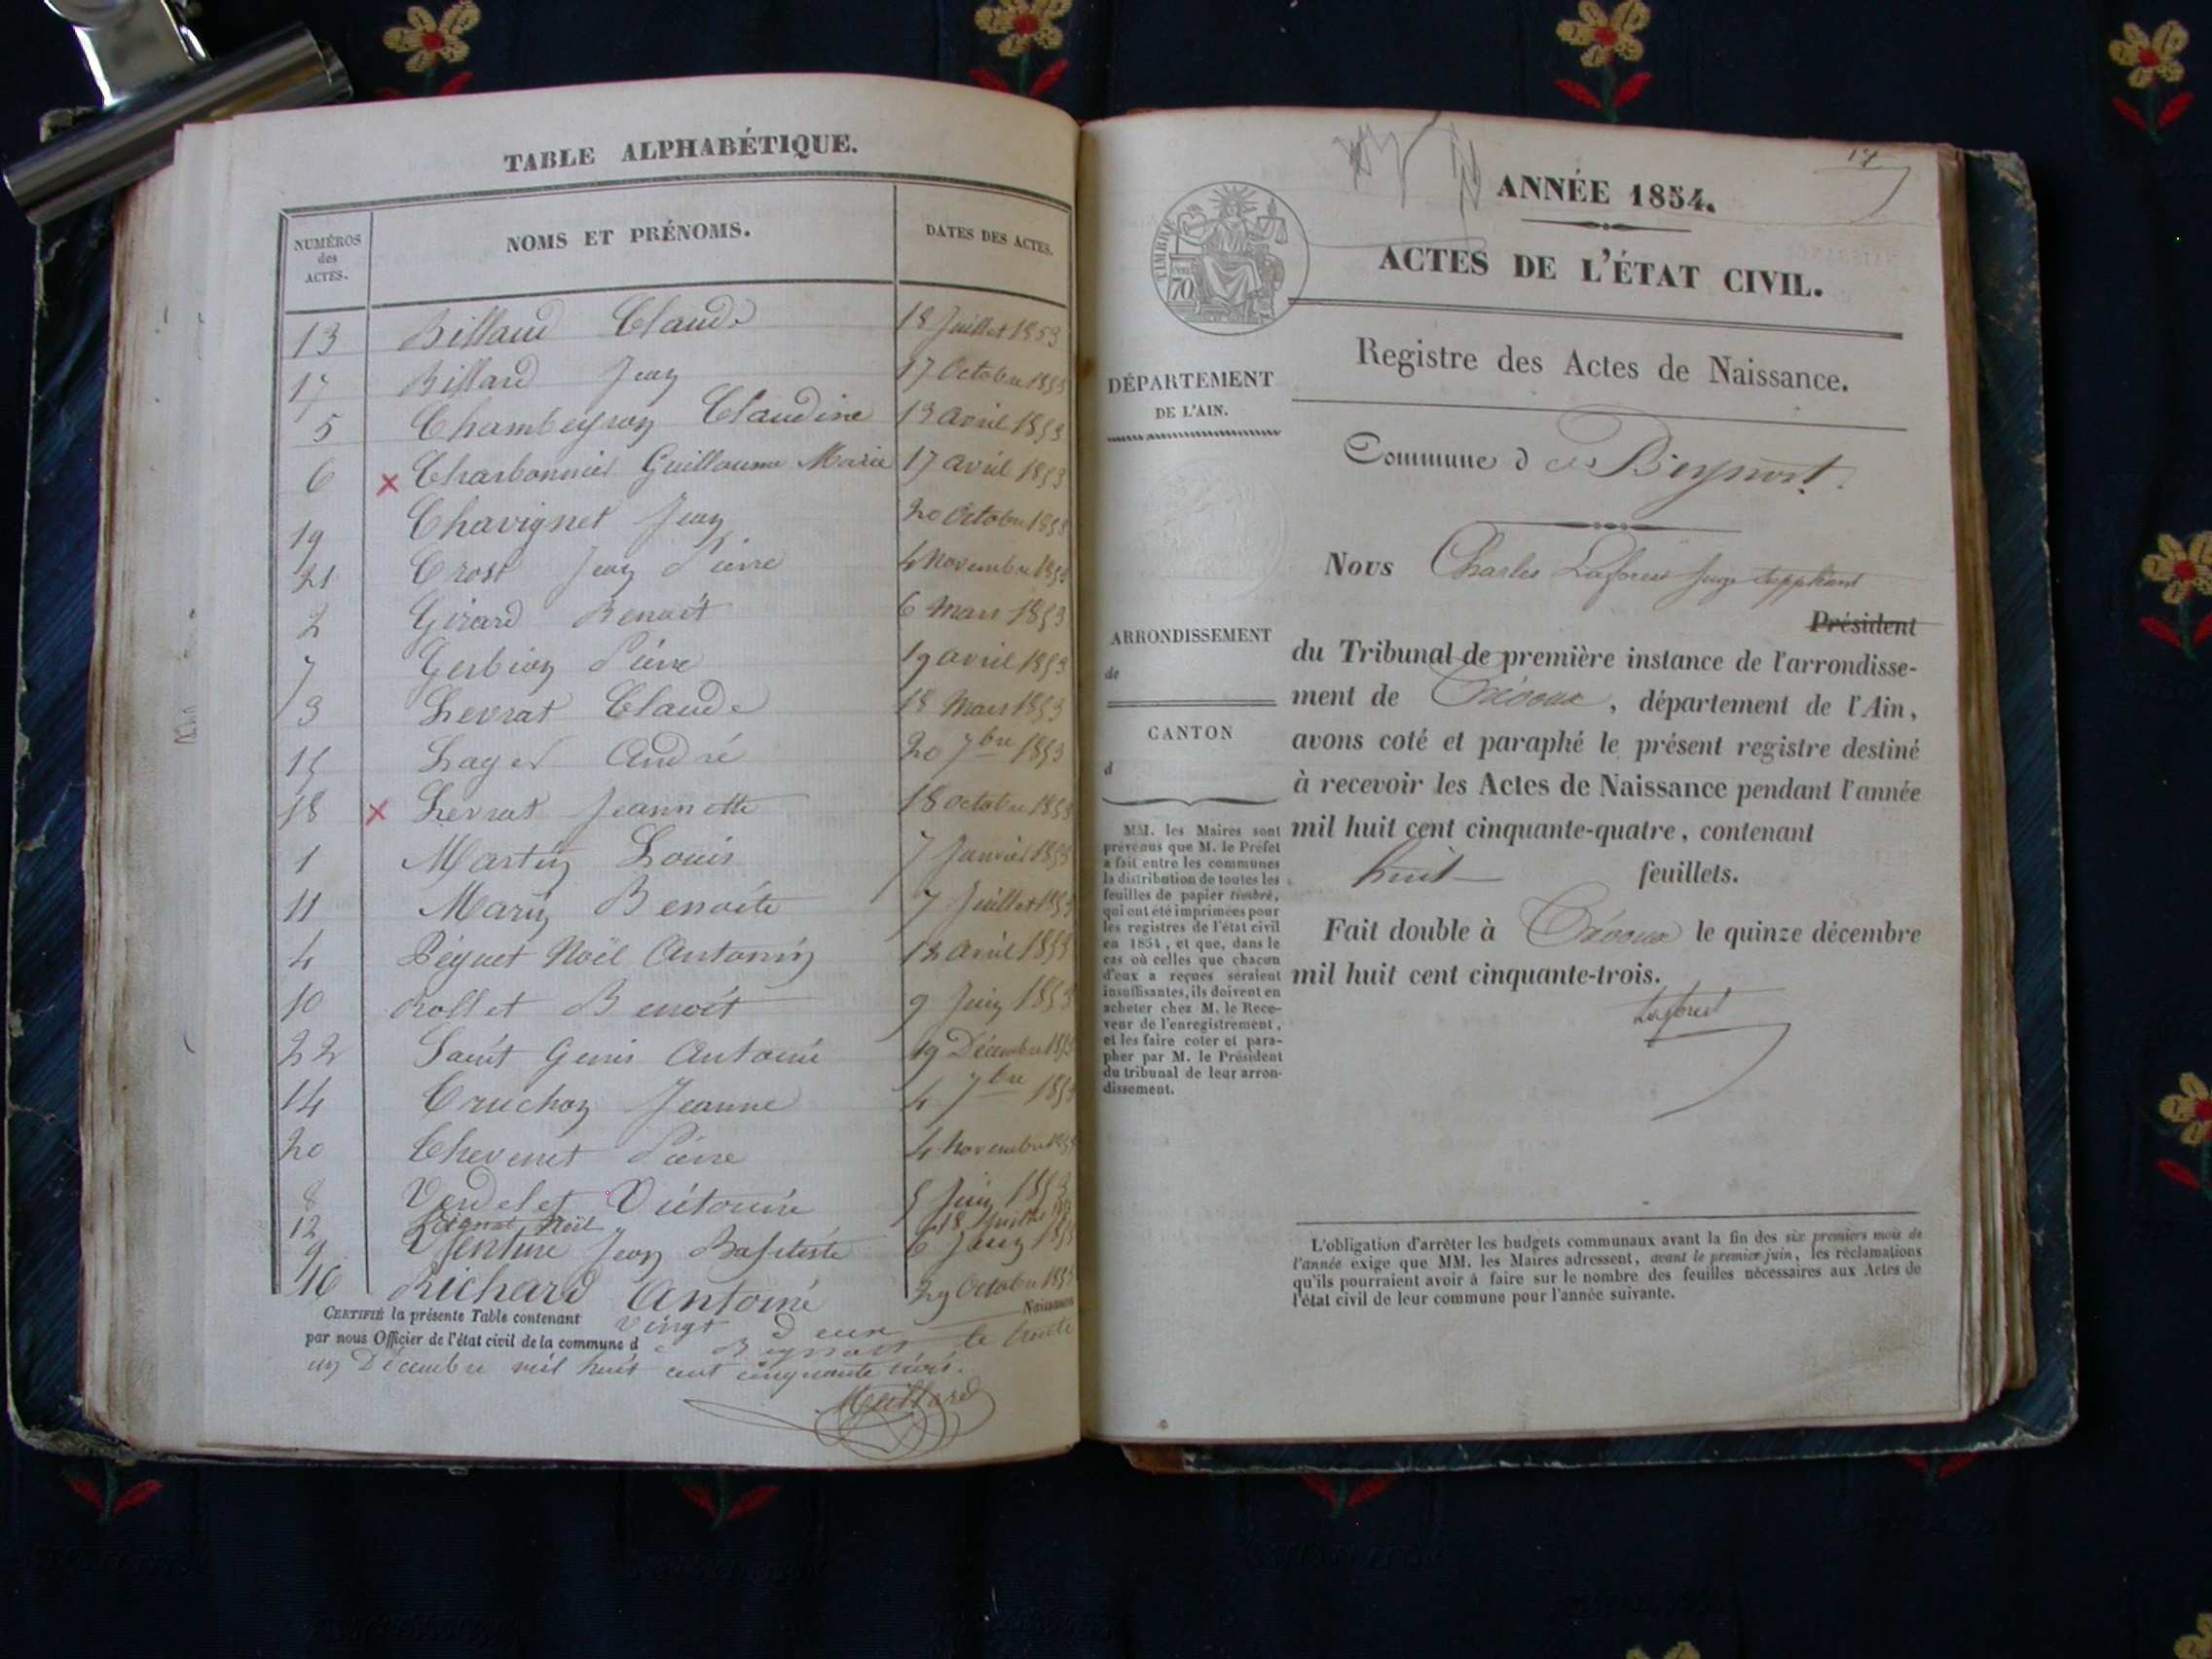 TABLE ALPHABÉTIQUE.
NUMÉROS des ACTES. NOMS ET PRÉNOMS. DATES DES ACTES.
13 Billaud Claude 18 Juillet 1853
17 Billard Jean 17 Octobre 1853
5 Chambeyron Claudine 13 avril 1853
6 × Charbonnier Guillaume Marie 17 avril 1853
19 Chavignet Jean 20 Octobre 1853
21 Crost Jean Pierre 4 Novembre 1853
2 Girard Benoit 6 Mars 1853
7 Gerbion Pierre 19 avril 1853
3 Levrat Claude 18 Mars 1853
15 Lager André 20 7bre 1853
18 × Levrat Jeannette 18 octobre 1853
1 Martin Louis 7 Janvier 1853
11 Marin Benoite 7 Juillet 1853
4 Péguet Noël Antonin 12 avril 1853
10 Rollet Benoit 9 Juin 1853
22 Saint Genis Antoine 19 Décembre 1853
14 Truchon Jeanne 4 7bre 1853
20 Thevenet Pierre 4 Novembre 1853
8 Verdelet Victorine 5 Juin 1853
12 Noël 18 Juillet
9 Venture Jean Baptiste 6 Juin 1853
16 Richard Antoine 29 Octobre 1853
CERTIFIÉ la présente Table contenant vingt deux Naissances
par nous Officier de l'état civil de la commune de Beynost le trente
un Décembre mil huit cent cinquante trois.
17
ANNÉE 1854.
ACTES DE L'ÉTAT CIVIL.
TIMBRE
70
Registre des Actes de Naissance.
DÉPARTEMENT
DE L'AIN.
Commune d de Beynost.
Nous Charles Laforest Juge suppléant
Président
ARRONDISSEMENT
de
du Tribunal de première instance de l'arrondisse-
ment de Trévoux, département de l'Ain,
CANTON
d
avons coté et paraphé le présent registre destiné
à recevoir les Actes de Naissance pendant l'année
mil huit cent cinquante-quatre, contenant
huit feuillets.
Fait double à Trévoux le quinze décembre
mil huit cent cinquante-trois.
Laforest
MM. les Maires sont
prévenus que M. le Préfet
a fait entre les communes
la distribution de toutes les
feuilles de papier timbré,
qui ont été imprimées pour
les registres de l'état civil
en 1854, et que, dans le
cas où celles que chacun
d'eux a reçues seraient
insuffisantes, ils doivent en
acheter chez M. le Rece-
veur de l'enregistrement,
et les faire coter et para-
pher par M. le Président
du tribunal de leur arron-
dissement.
L'obligation d'arrêter les budgets communaux avant la fin des six premiers mois de
l'année exige que MM. les Maires adressent, avant le premier juin, les réclamations
qu'ils pourraient avoir à faire sur le nombre des feuilles nécessaires aux Actes de
l'état civil de leur commune pour l'année suivante.